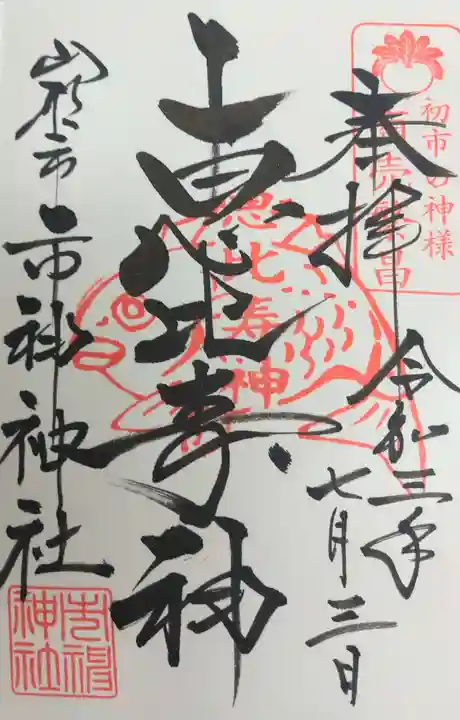 初市の神様
商売繁昌
奉拝
令和三年
七月三日
恵比寿神
恵比寿神
山形市
市神神社
市神
神社